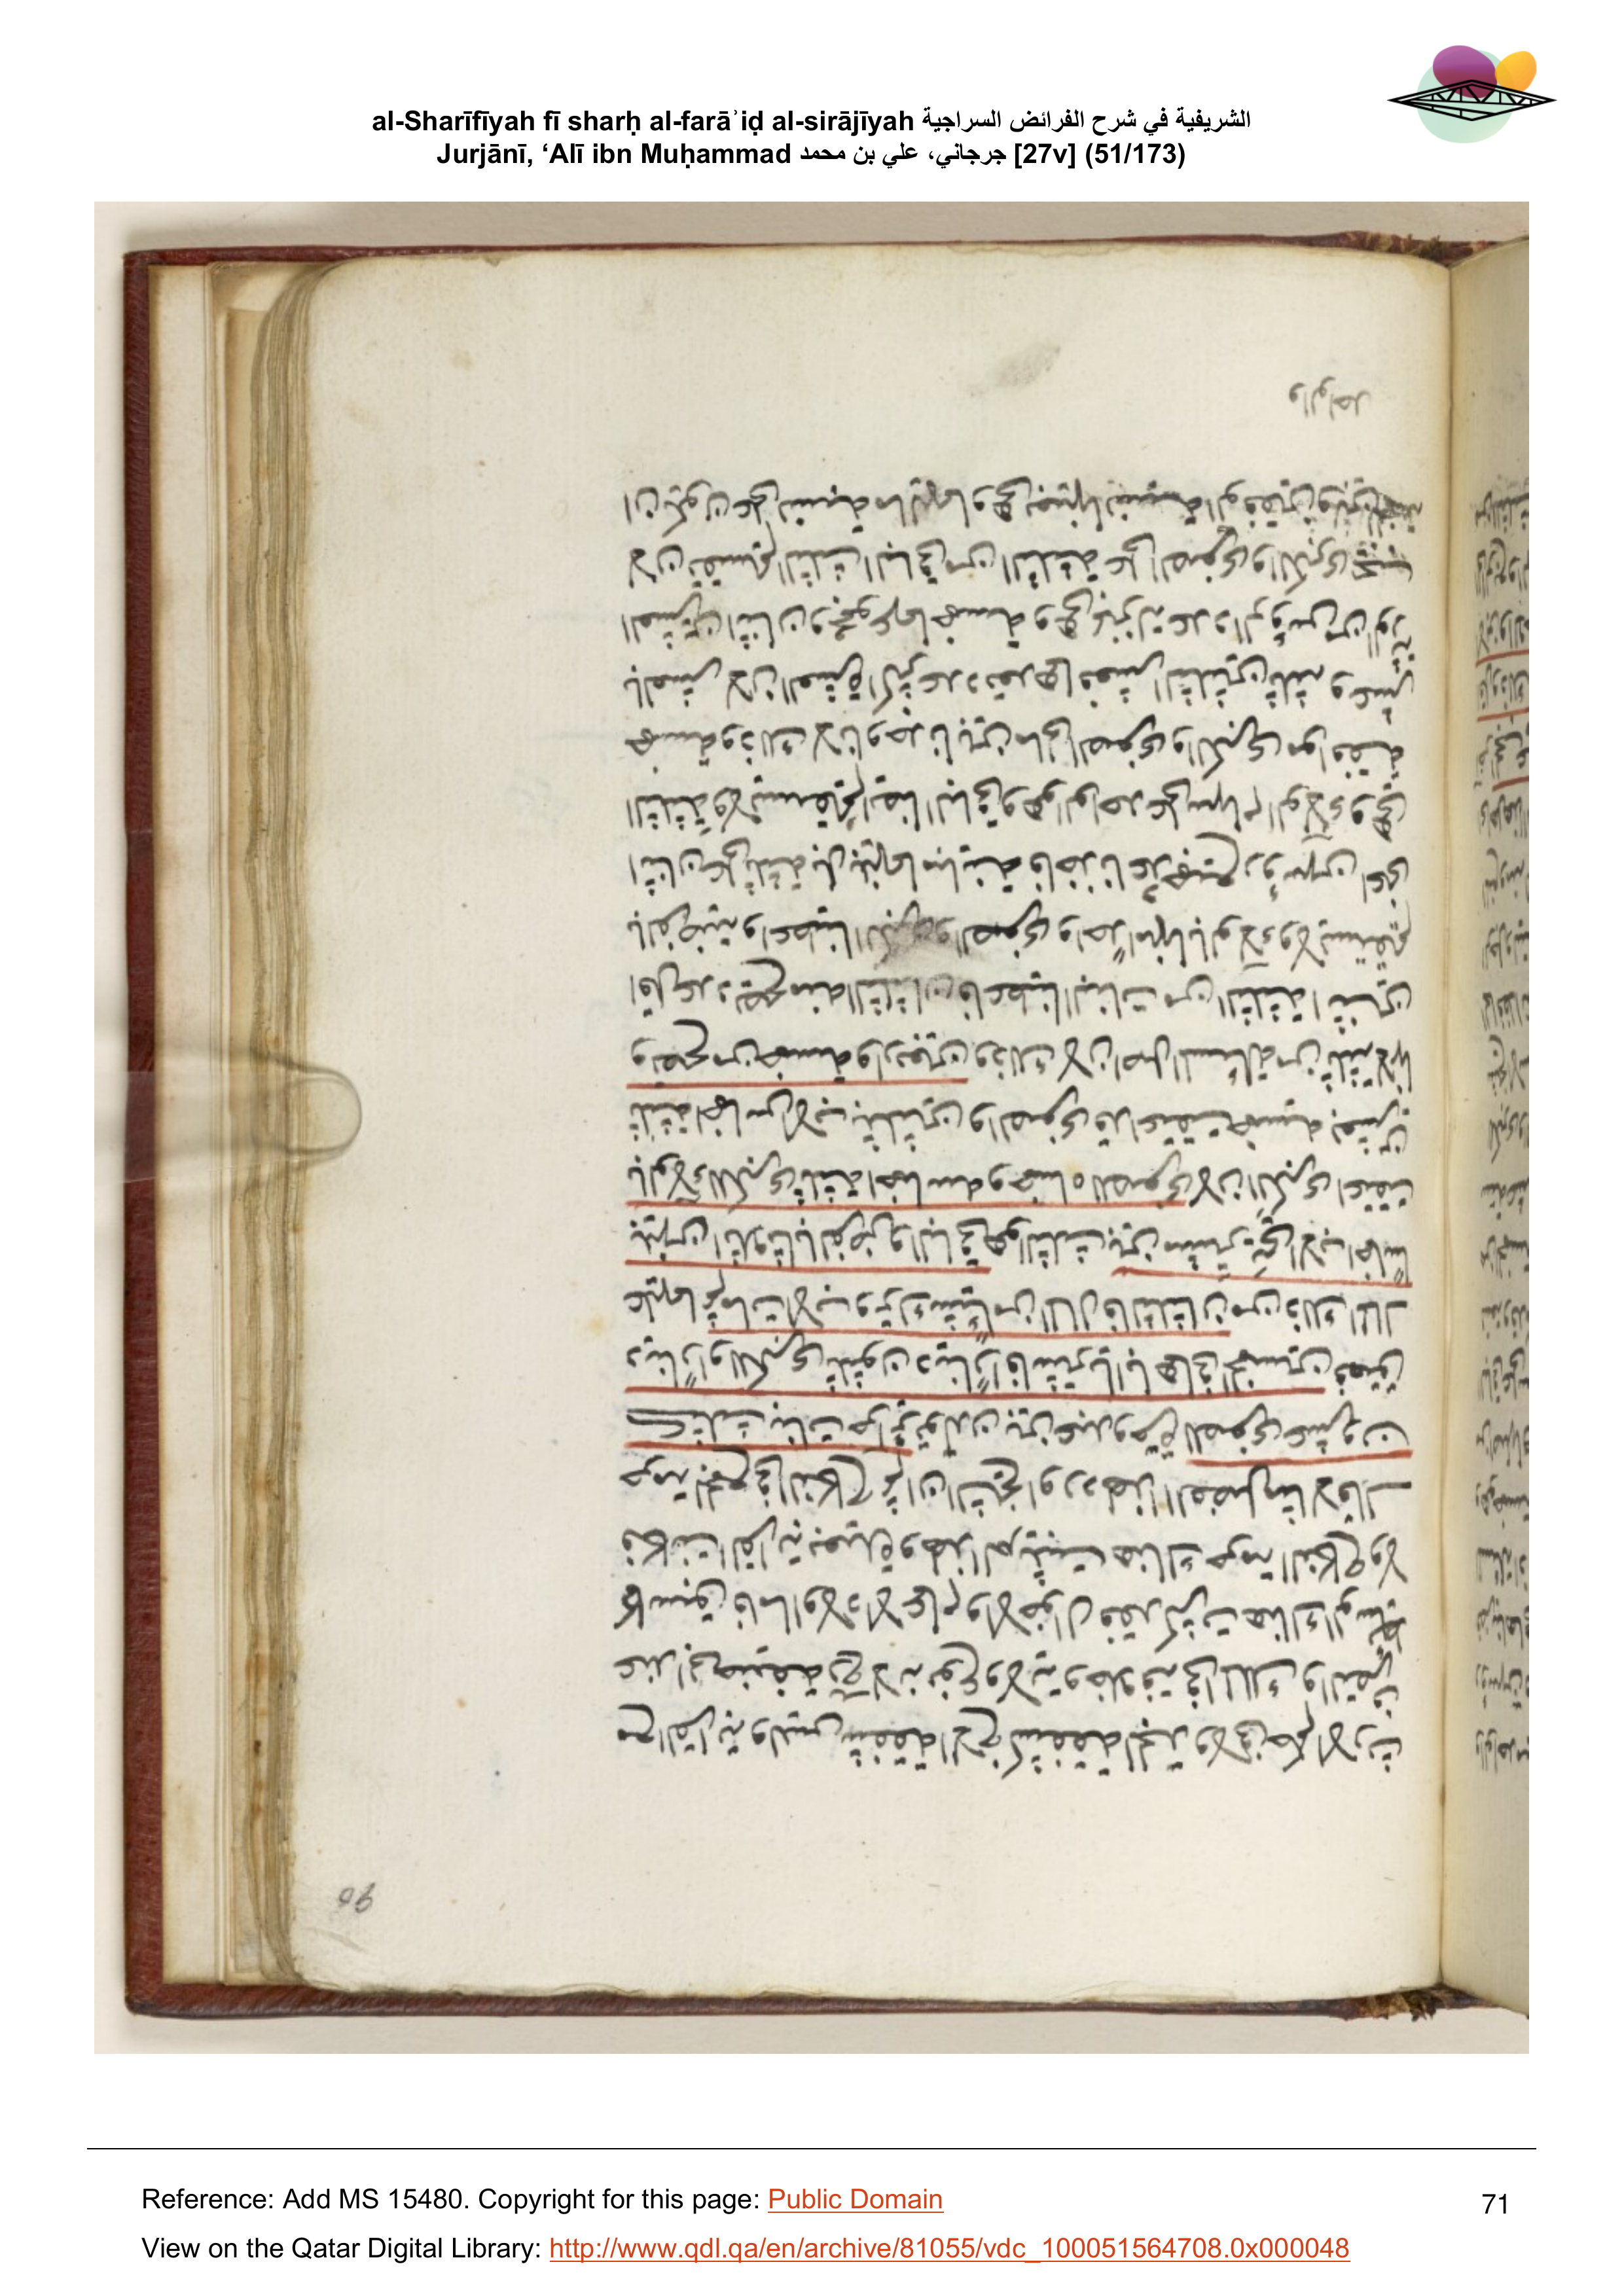 al-Sharīfīyah fī sharḥ al-farāʾiḍ al-sirājīyah الشريفية في شرح الفرائض السراجية
Jurjānī, ‘Alī ibn Muḥammad جرجاني، علي بن محمد [27v] (51/173)
مع القرابة وليس شفقة الاخ كشفقة الجد ولا في عدم الارث
عند ابي حنيفة رح لانه نوع ولاية وخلافة في الملك والتصرف
كما سبق فاما اولاد الاعمام والاخوال فقد كثرت هنالك الوسائط
فكانت القرابة بعيدة ولهذا لم يثبت هناك حرمة النكاح ولا
حرمة الجمع في النكاح ثم ان الشيخ اورد لهذا الفصل مثالا فقال
كثلث بنات حرائر ولدن بين عبد وحرة للصغرى عشرون
دينارا وللكبرى ثلثون دينارا فاشتريا اباهما بالخمسين فعتق
عليهما ثم مات الاب وترك شيئا من المال فالثلثان من ذلك المال
بينهن اثلاثا بالفرض والباقي هو الثلث بين مشتريتي الاب اخماسا
بالولاء للكبرى ثلثة اخماسه وخمساه للصغرى لان الكبرى اعتقت
ثلثة اخماس الاب بثلثين والصغرى قد اعتقت خمسيه بعشرين
وتصح من خمسة واربعين وذلك لان اصل المسئلة من ثلثة لانها
اقل عدد يصح منه الثلثان فاعطينا البنات من الثلثة اثنين
بالفرضية واعطينا الكبرى والصغرى واحدا منها بالولاء ولا يستقيم
اثنان على ثلثة بل بينهما مباينة فاخذنا عدد جميع رؤسهن اعني
الثلثة ولا يستقيم ايضا الباقي وهو الواحد على سهام الولاء وهي
خمسة وذلك لانا وجدنا بين مالي الصغرى والكبرى موافقة
بالعشر لان العشرة اكثر عدد يعدهما فعشر الثلثين ثلثة وعشر
العشرين اثنان ومجموعهما خمسة وهي بمنزلة عدد الرؤس
لان قسمة الثلث الباقي من الثلثة على الصغرى والكبرى يجب
ان يكون على نسبة ماليهما وهي بعينها نسبة الوفقين
والواحد
Reference: Add MS 15480. Copyright for this page: Public Domain
71
View on the Qatar Digital Library: http://www.qdl.qa/en/archive/81055/vdc_100051564708.0x000048